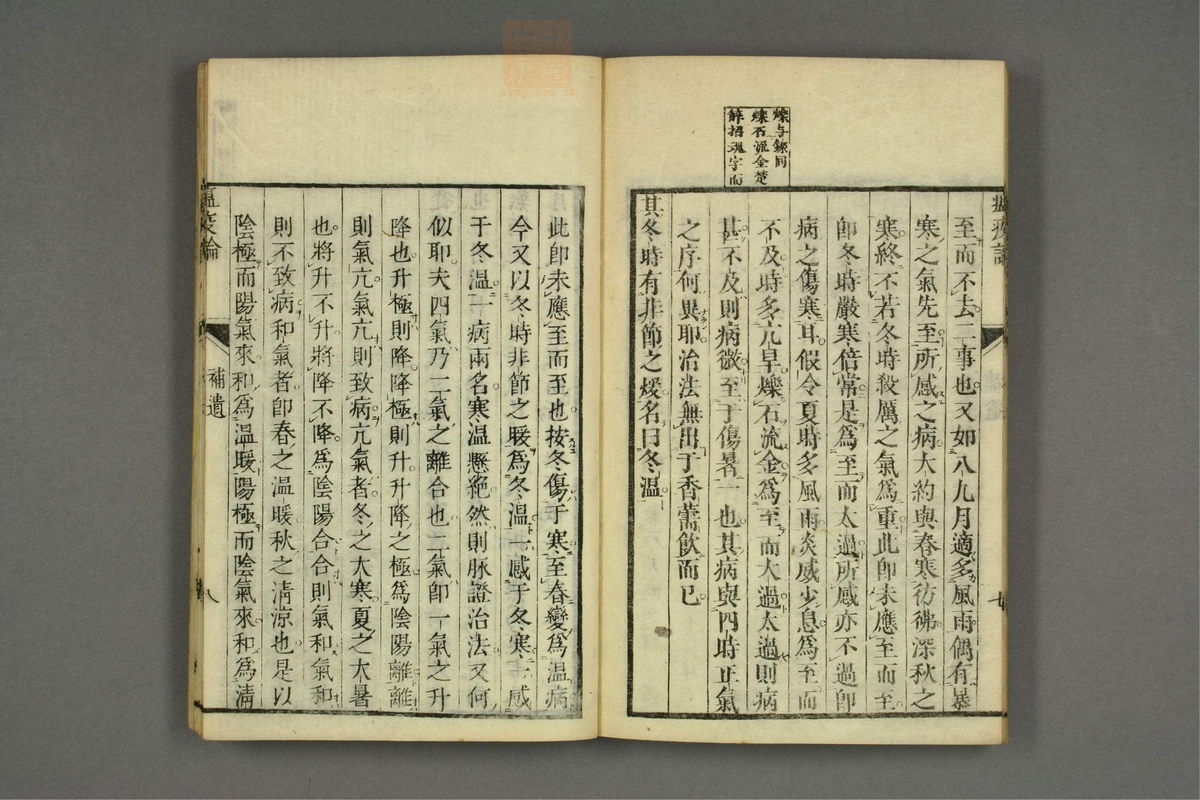 爍与鑠同
爍石流金楚
辭招魂字而
瘟疫論
至而不去二事也又如八九月適多風雨偶有暴
寒之氣先至所感之病大約與春寒彷彿深秋之
寒終不若冬時殺厲之氣爲重此即未應至而至
即冬時嚴寒倍常是爲至而太過所感亦不過即
病之傷寒耳假令夏時多風雨炎威少息爲至而
不及時多亢旱爍石流金爲至而太過太過則病
甚不及則病微至于傷暑一也其病與四時正氣
之序何異耶治法無出于香薷飲而已
其冬時有非節之煖名曰冬溫
此即未應至而至也按冬傷于寒至春變爲溫病
今又以冬時非節之暖爲冬溫一感于冬寒一感
于冬溫一病兩名寒溫懸絶然則脉證治法又何
似耶夫四氣乃二氣之離合也二氣即一氣之升
降也升極則降降極則升升降之極爲陰陽離離
則氣亢氣亢則致病亢氣者冬之大寒夏之大暑
也將升不升將降不降爲陰陽合合則氣和氣和
則不致病和氣者即春之溫暖秋之淸涼也是以
陰極而陽氣來和爲溫暖陽極而陰氣來和爲淸
瘟疫論
補遺
八